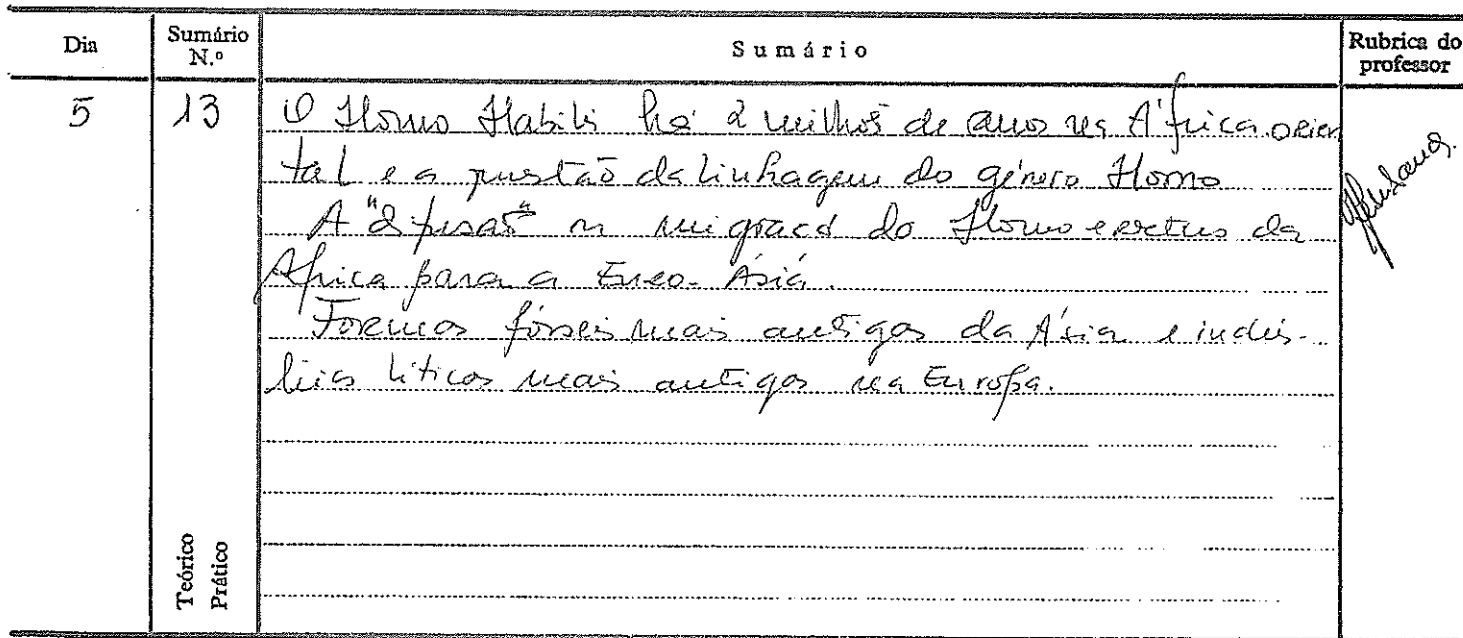 Dia
Sumário N.º
Sumário
Rubrica do professor
5
13
O Homo Habilis há 2 milhões de anos na África orien
tal e a questão da linhagem do género Homo
A "difusão" migração do Homo erectus da
África para a Euro-Ásia.
Formas fósseis mais antigas da Ásia e indús-
trias líticas mais antigas na Europa.
Teórico
Prático